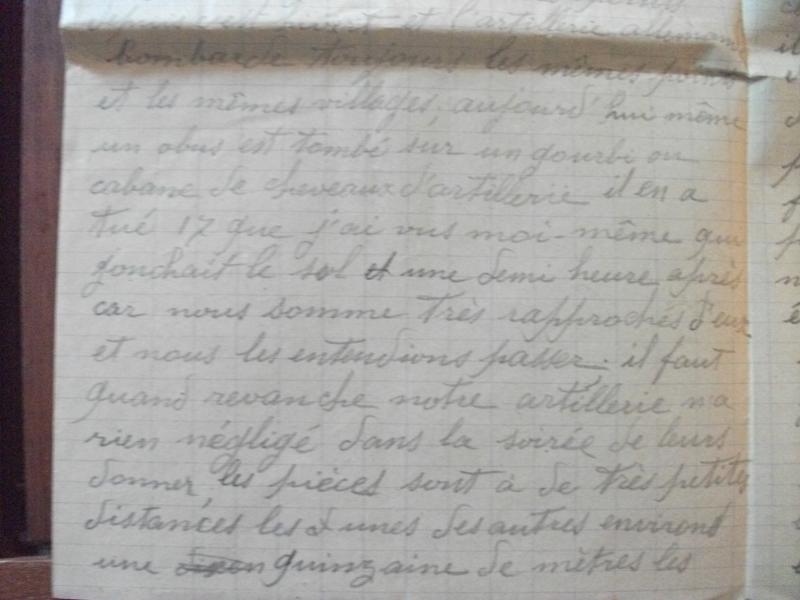 c'est et l'artillerie allemand
bombarde toujours les mêmes points
et les mêmes villages, aujourd'hui même
un obus est tombé sur un gourbi ou
cabane de cheveaux d'artillerie il en a
tué 17 que j'ai vus moi-même qui
jonchait le sol et une demi heure après
car nous somme très rapprochés d'eux
et nous les entendions passer; il faut
quand revanche notre artillerie n'a
rien négligé dans la soirée de leurs
donner, les pièces sont à de très petites
distances les unes des autres environt
une quinzaine de mètres les